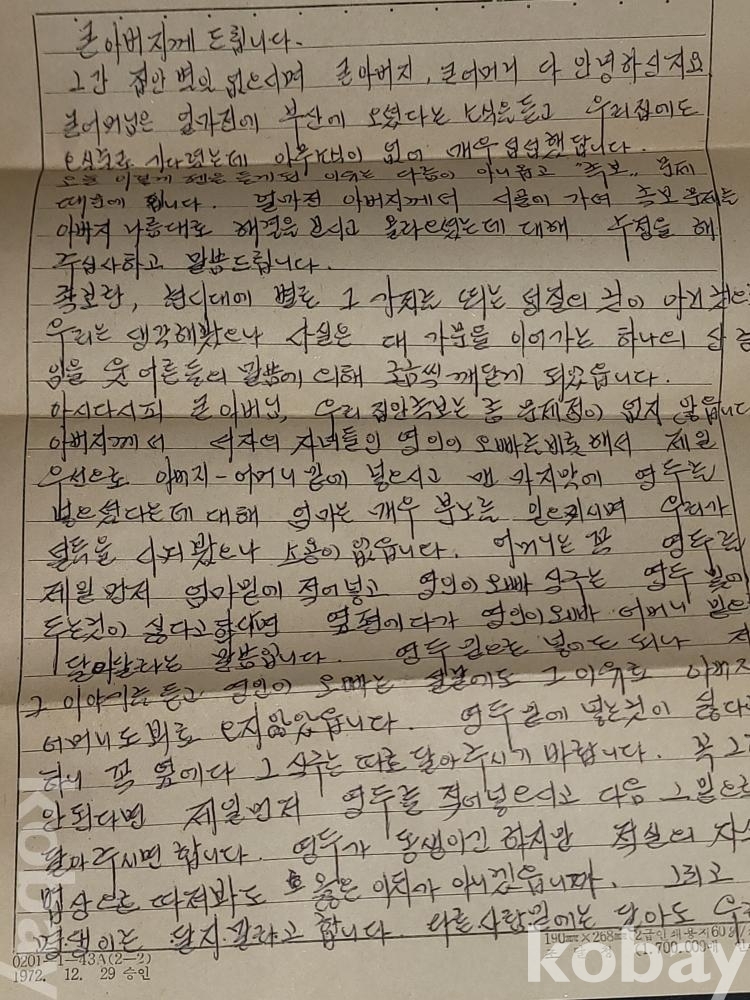 큰아버지께 드립니다.
그간 집안 별일 없으시며 큰아버지, 큰어머니 다 안녕하신지요
큰어머님은 얼마전에 부산에 오셨다는 소식을 듣고 우리집에도
오실줄로 기다렸는데 아무 소식이 없어 매우 섭섭했답니다.
오늘 이렇게 펜을 들게된 이유는 다름이 아니옵고 "족보" 문제
때문에 입니다. 얼마전 아버지께서 시골에 가셔 족보 문제를
아버지 나름대로 해결을 보시고 올라오셨는데 대해 수정을 해
주십사하고 말씀드립니다.
족보란, 현시대에 별로 그 가치를 띄는 성질의 것이 아닌 것으로
우리는 생각해봤으나 사실은 대 가문을 이어가는 하나의
임을 웃 어른들의 말씀에 의해 조금씩 깨닫게 되었읍니다.
아시다시피 큰아버님, 우리 집안족보는 좀 문제점이 없지 않읍니다
아버지께서 서자의 자녀들인 영인이 오빠를 비롯해서 제일
우선으로 아버지-어머니 끝에 넣으시고 맨 마지막에 영두를
넣으셨다는데 대해 엄마는 매우 분노를 일으키시며 우리가
설득을 시켜 봤으나 소용이 없읍니다. 어머니는 꼭 영두를
제일 먼저 엄마밑에 적어넣고 영인이 오빠 식구는 영두 밑에
두는것이 싫다고 한다면 옆편에다가 영인이 오빠 어머니 밑으
달아달라는 말씀입니다. 영두 밑으로 넣어도 되나
그 이야기를 듣고 영인이 오빠는 설날에도 그 이유로 아버지
어머니도 뵈로 오지 않았읍니다. 영두 밑에 넣는것이 싫다
하니 꼭 옆에다 그 식구는 따로 달아주시기 바랍니다. 꼭 그
안된다면 제일먼저 영두를 적어넣으시고 다음 그 밑으로
달아주시면 합니다. 영두가 동생이긴 하지만 적실의 자식
법상으로 따져봐도 옳은 이치가 아니겠읍니까. 그리고
달지 말라고 합니다. 다른사람밑에는 달아도
0201-1-43A(2-2)
1972. 12. 29 승인
190㎜×268㎜ 2급인쇄용지60g/
(1,700,000매
kobay
kobay